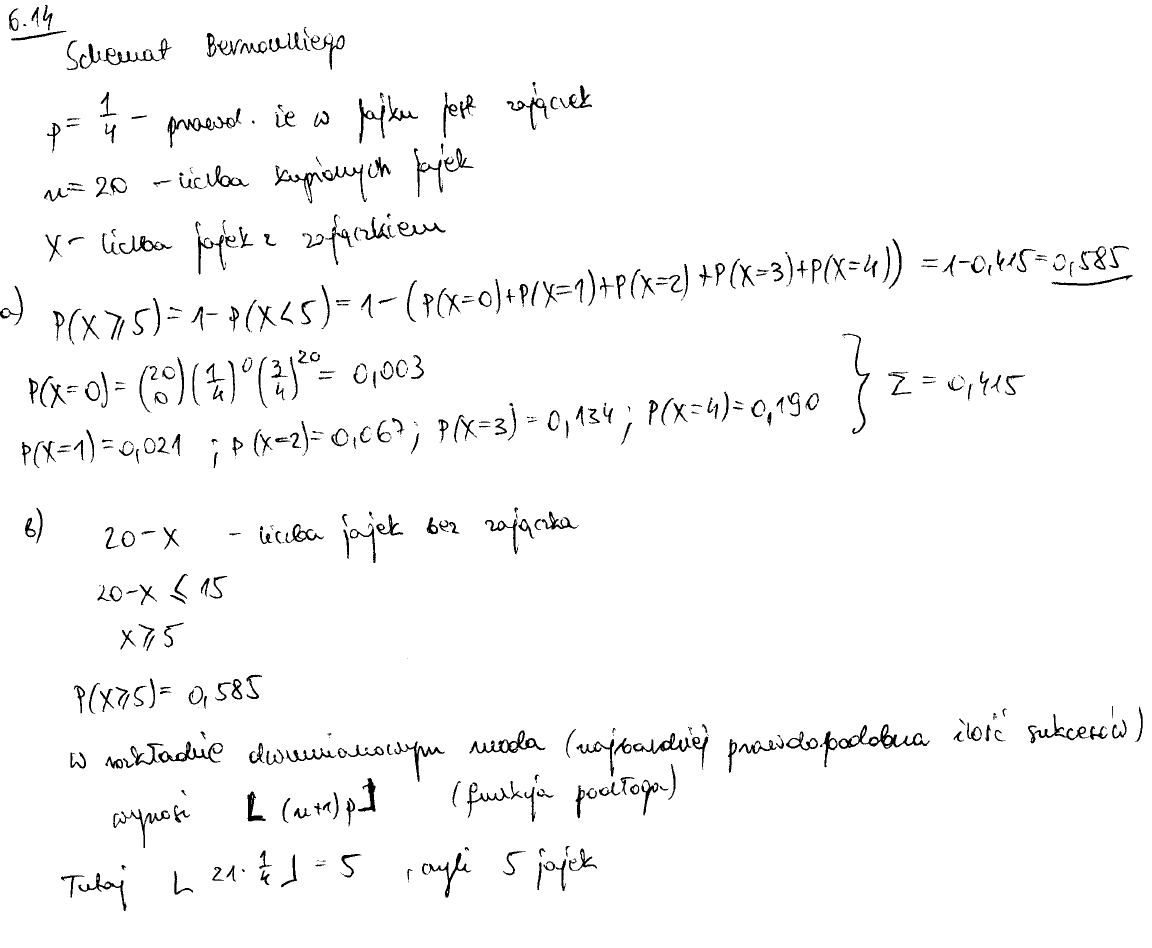 6.14
Schemat Bernoulliego
p = 1/4 - prawd. że w jajku jest zajączek
n = 20 - liczba kupionych jajek
X - liczba jajek z zajączkiem
a) P(X ⩾ 5) = 1 - P(X < 5) = 1 - (P(X=0)+P(X=1)+P(X=2)+P(X=3)+P(X=4)) = 1-0,415 = 0,585
P(X=0) = (20 0) (1/4)^0 (3/4)^20 = 0,003
P(X=1) = 0,021 ; P(X=2) = 0,067 ; P(X=3) = 0,134 ; P(X=4) = 0,190 } Σ = 0,415
b) 20-X - liczba jajek bez zajączka
20-X ⩽ 15
X ⩾ 5
P(X⩾5) = 0,585
W rozkładzie dwumianowym moda (najbardziej prawdopodobna ilość sukcesów)
wynosi ⌊(n+1)p⌋ (funkcja podłoga)
Tutaj ⌊21·1/4⌋ = 5 , czyli 5 jajek